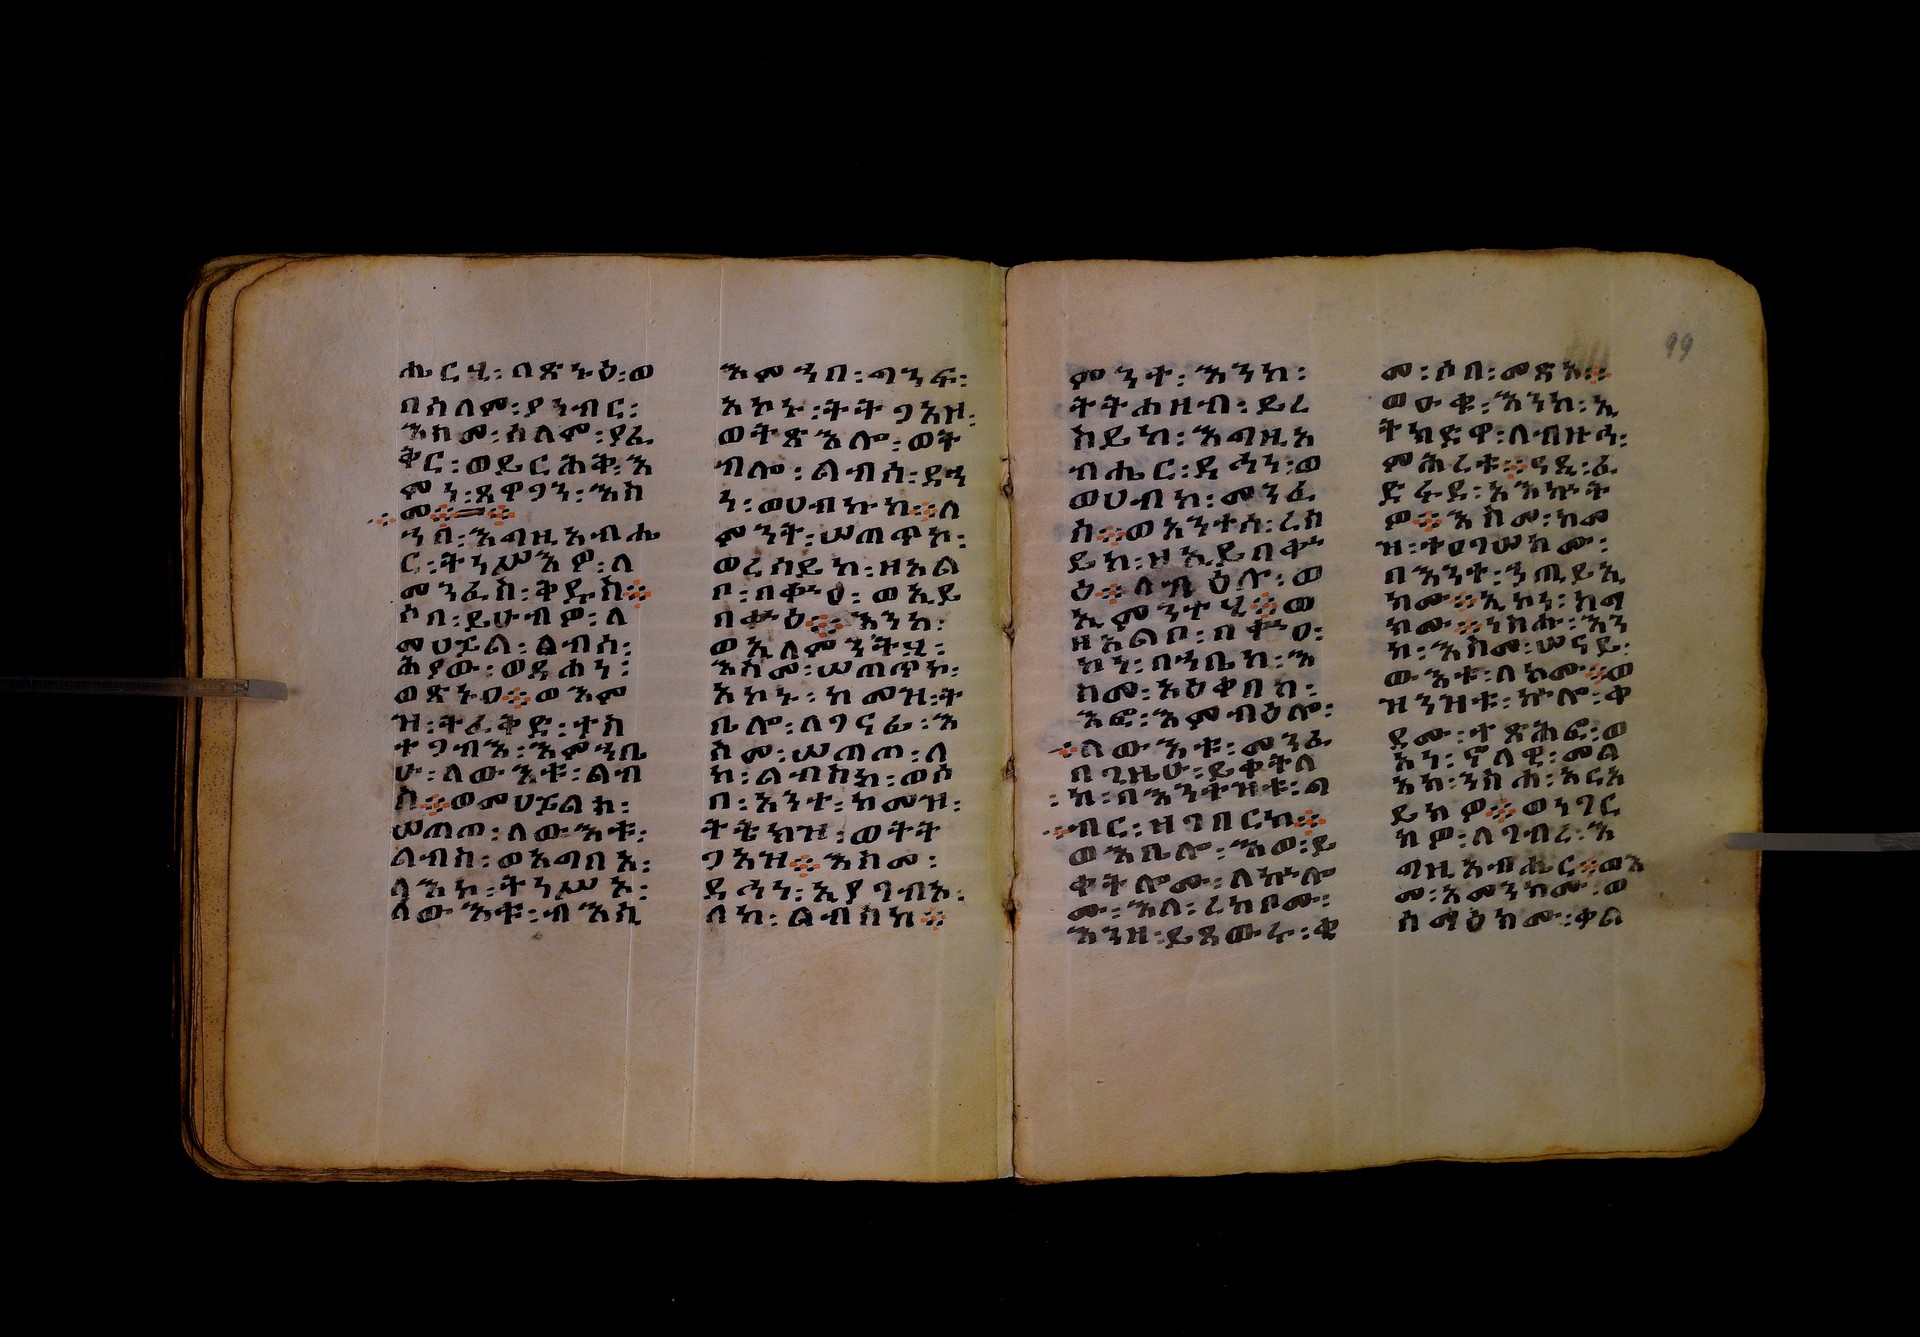 ሔርሂ፡በጽኑዕ፡ወ
በሰለም፡ያንብር፡
እከመ፡ሰለም፡ያፈ
ቅር፡ወይርሕቅ፡እ
ምነ፡ጸዋጋን፡እከ
መ፨
ንበ፡እግዚአብሔ
ር፡ትንሥእዎ፡ለ
መንፈስ፡ቅዱስ፨
ሶበ፡ይሁብዎ፡ለ
መሀይል፡ልብስ፡
ሕያው፡ወዳሐን፡
ወጽኑዐ፨ወእም
ዝ፡ትፈቅድ፡ተከ
ተጋብእ፡እምኀቤ
ሁ፡ለውእቱ፡ልብ
ስ፨ወመሀይልከ፡
ሠጠጦ፡ለውእቱ፡
ልብስ፡ወአግበአ፡
ለእከ፡ትንሥኦ፡
ለውእቱ፡ብእሲ
እምኀበ፡ግንፍ፡
አኮኑ፡ትትጋአዝ፡
ወትጽእሎ፡ወት
ብሎ፡ልብሰ፡ደኀ
ን፡ወሀብኩከ፨ለ
ምንት፡ሠጠጥኮ፡
ወረሰይከ፡ዘአል
ቦ፡በቍዐ፡ወኢይ
በቍዕ፨እንከ፡
ወኢለምንትሂ፡
እስመ፡ሠጠጥኮ፡
አኮኑ፡ከመዝ፡ት
ቤሎ፡ለጋናፊ፡እ
ስመ፡ሠጠጦ፡ለ
ከ፡ልብስከ፡ወሶ
በ፡አንተ፡ከመዝ፡
ትቴክዝ፡ወትት
ጋአዝ፨እከመ፡
ደኀነ፡ኢያግብአ፡
ለከ፡ልብሰከ፨
ምንተ፡እንከ፡
ትትሐዘብ፡ይረ
ስይከ፡እግዚአ
ብሔር፡ዳኅነ፡ወ
ወሀብከ፡መንፈ
ሰ፨ወአንተሰ፡ረሰ
ይከ፡ዘኢይበቍ
ዕ፨ለብዕሎ፡ወ
ኢምንተሂ፨ወ
ዘአልቦ፡በቍዐ፡
ከነ፡በኀቤከ፡እ
ከመ፡አዕቀበከ፡
እፎ፡እምብዕሎ፡
ለውእቱ፡መንፈ
በጊዜሁ፡ይቀትለ
ከ፡በእንተዝቱ፡ል
ብር፡ዘገበርከ፨
ወእቤሎ፡እወ፡ይ
ቀትሎሙ፡ለኵሎ
ሙ፡እለ፡ረከቦሙ፡
እንዘ፡ይጸውሩ፡ቂ
መ፡ሶበ፡መጽአ፨
ወሁቁ፡እንከ፡ኢ
ትክድዋ፡ለብዙኃ፡
ምሕረቱ፨ናዲ፡ፈ
ድፋደ፡አአኵት
ዎ፨እስመ፡ከመ
ዝ፡ተዐገሠክሙ፡
በእንተ፡ኀጢይአ
ክሙ፨ኢኮነ፡ከግ
ክሙ፨ንስሑ፡እን
ከ፡እስመ፡ሠናይ፡
ውእቱ፡ለክሙ፨ወ
ዝንዝቱ፡ኵሎ፡ቀ
ደሙ፡ተጽሕፎ፡ወ
አነ፡ኖለዊ፡መል
አከ፡ንስሐ፡አርአ
ይክዎ፨ወነገር
ክዎ፡ለገብረ፡እ
ግዚአብሔር፨ወእ
መ፡አመንክሙ፡ወ
ሰማዕክሙ፡ቀል